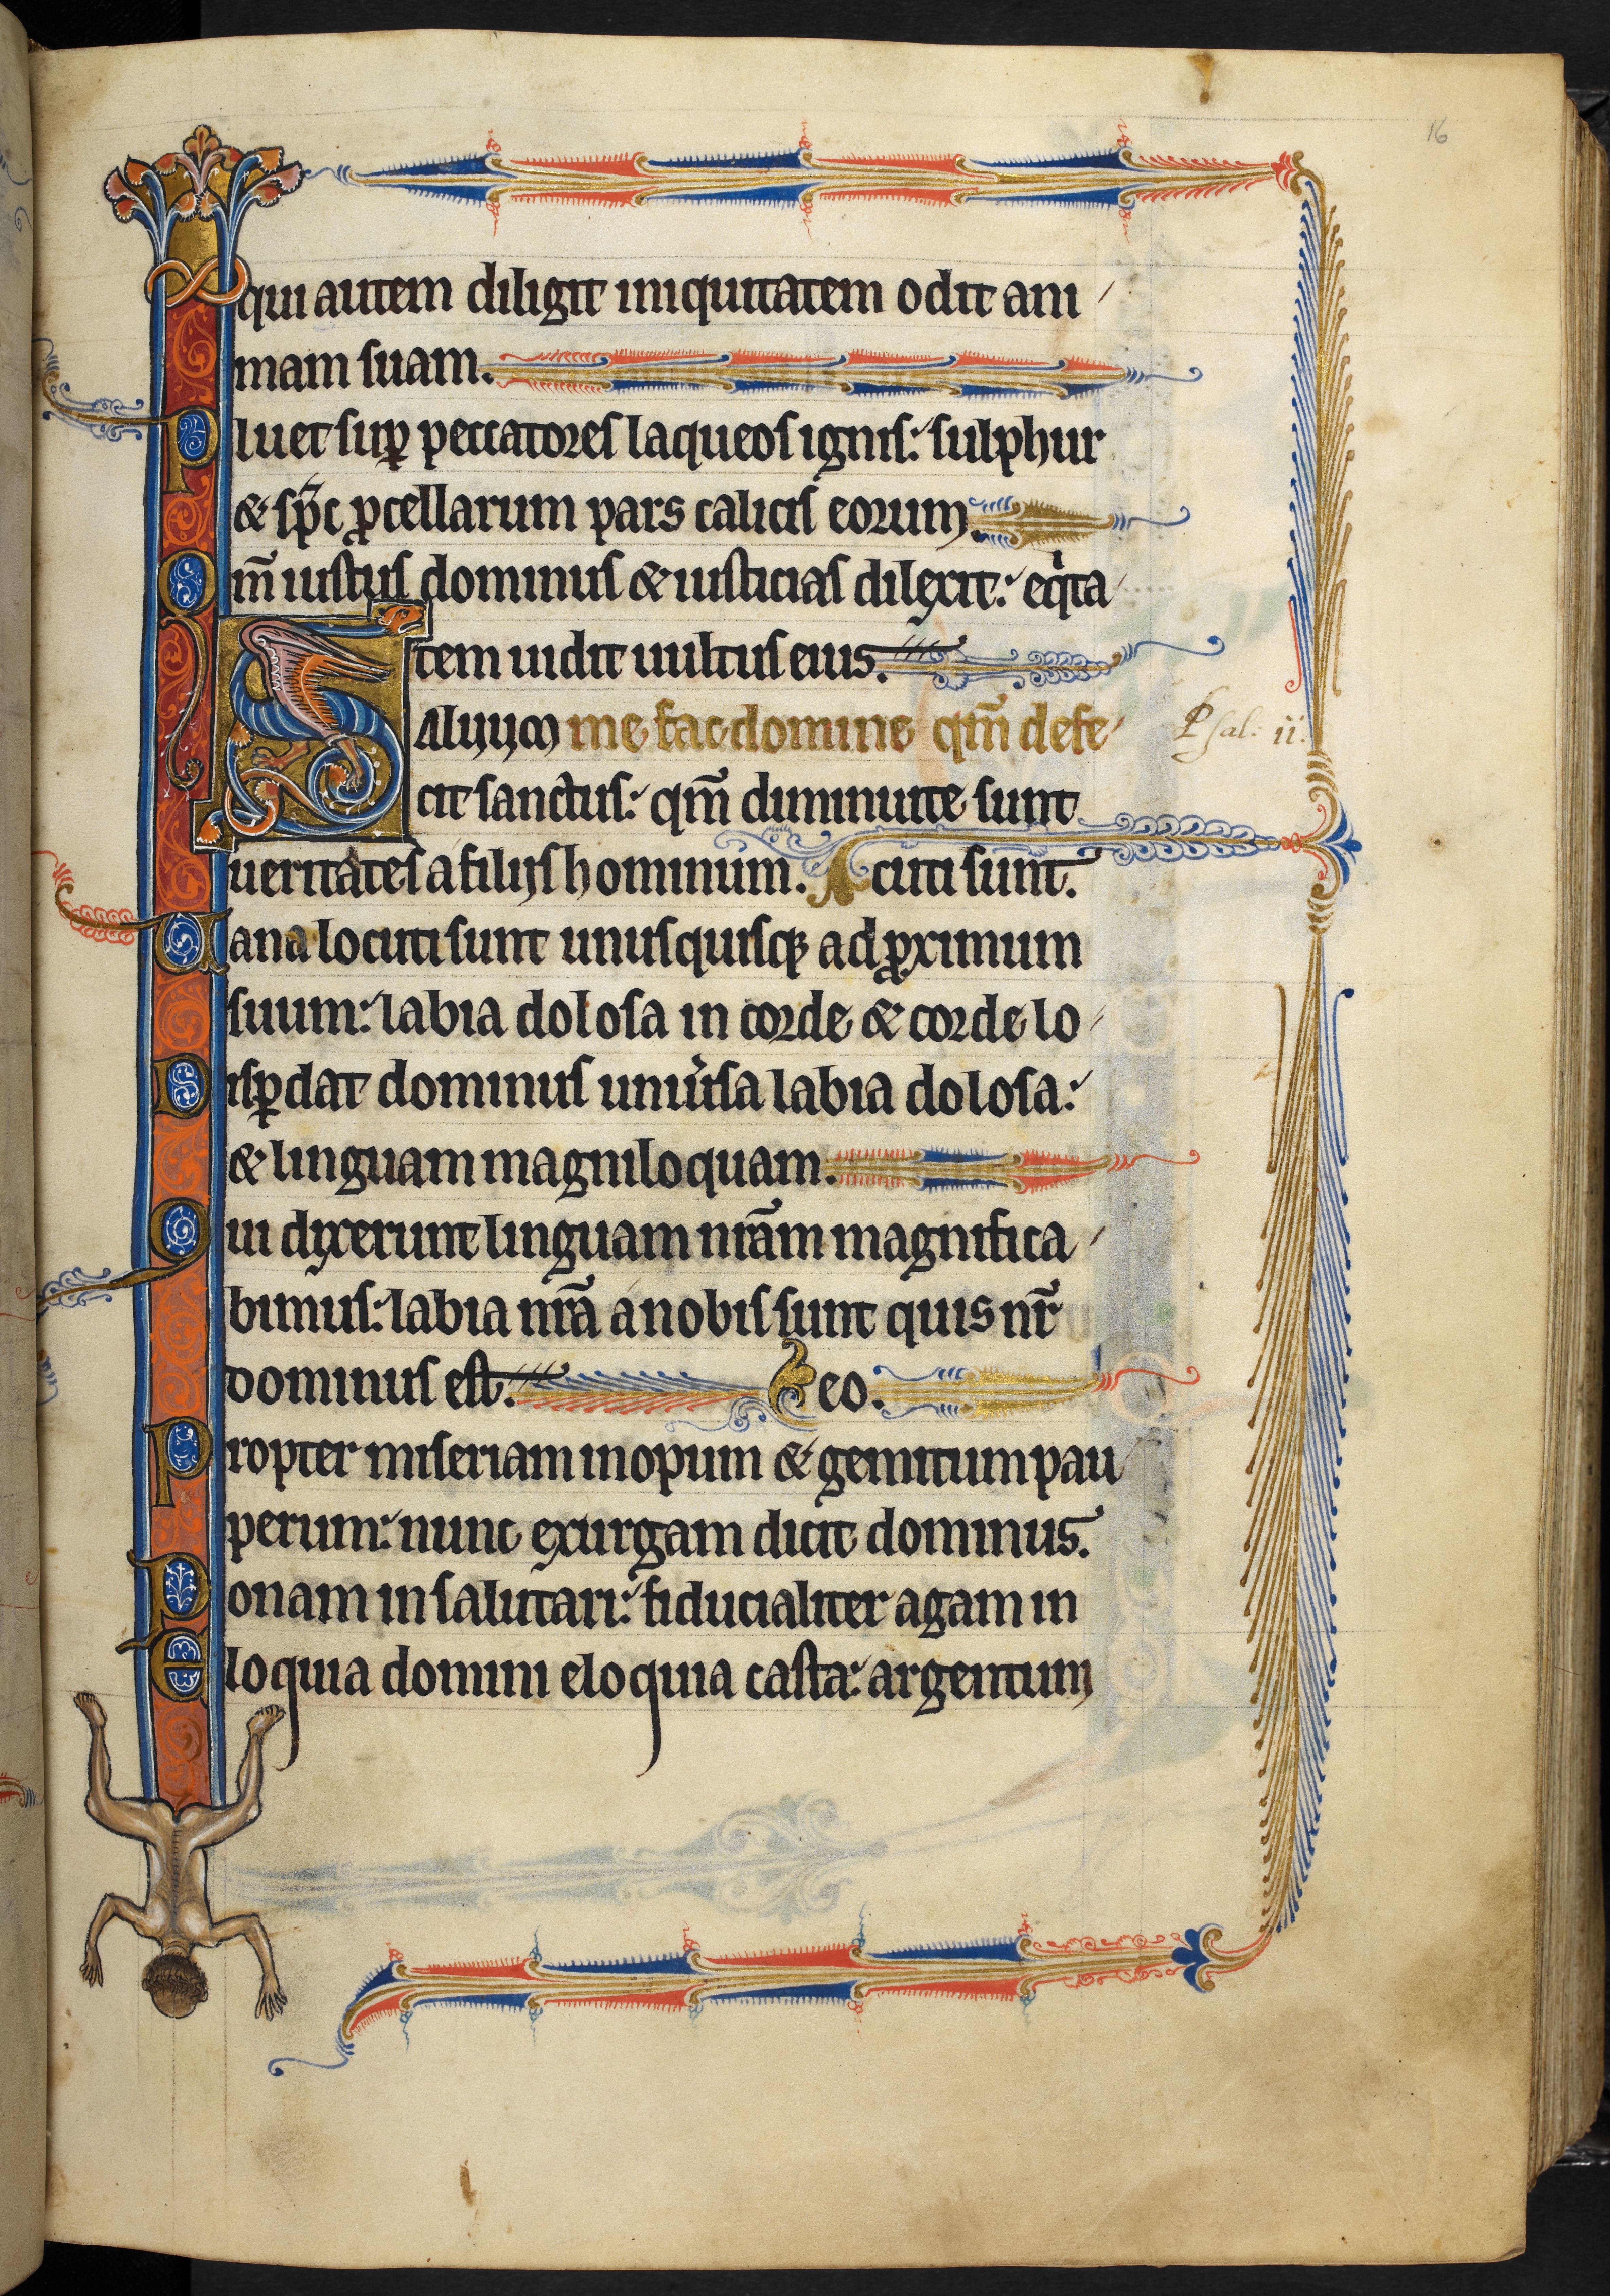 16
qui autem diligit iniquitatem odit ani
mam suam.
Pluet suꝑ peccatores laqueos ignis: sulphur
& sp̄c ꝓcellarum pars calicis eorum.
Qm̄ iustus dominus & iusticias dilexit: eqͥta
tem uidit uultus eius.
Saluum me fac domine qm̄ defe
Psal: ii:
cit sanctus: qm̄ diminute sunt
ueritates a filijs hominum. Acuti sunt.
Uana locuti sunt unusquisqꝫ ad ꝓximum
suum: labia dolosa in corde & corde lo
Disꝑdat dominus uniu̓sa labia dolosa:
& linguam magniloquam.
Qui dixerunt linguam nr̄am magnifica
bimus: labia nr̄a a nobis sunt quis nr̄
dominus est. Deo.
Propter miseriam inopum & gemitum pau
perum: nunc exurgam dicit dominus.
Ponam in salutari: fiducialiter agam in
Eloquia domini eloquia casta: argentum